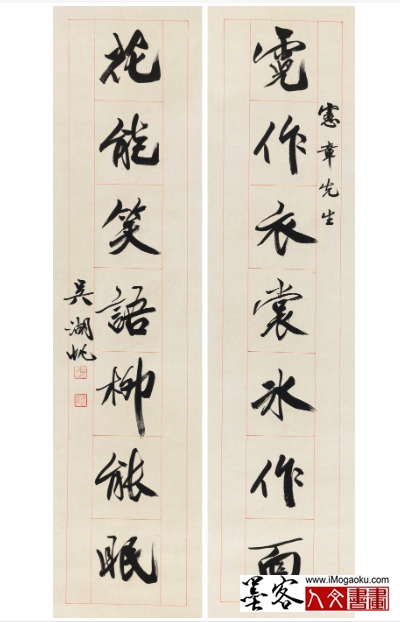 憲章先生
霓作衣裳冰作面
花能笑語柳能眠
吳湖帆
墨客
www.iMogaoku.com
人文書畫